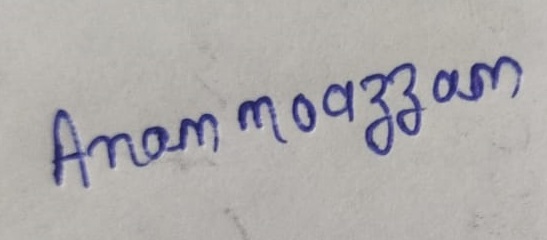 Anam moazzam